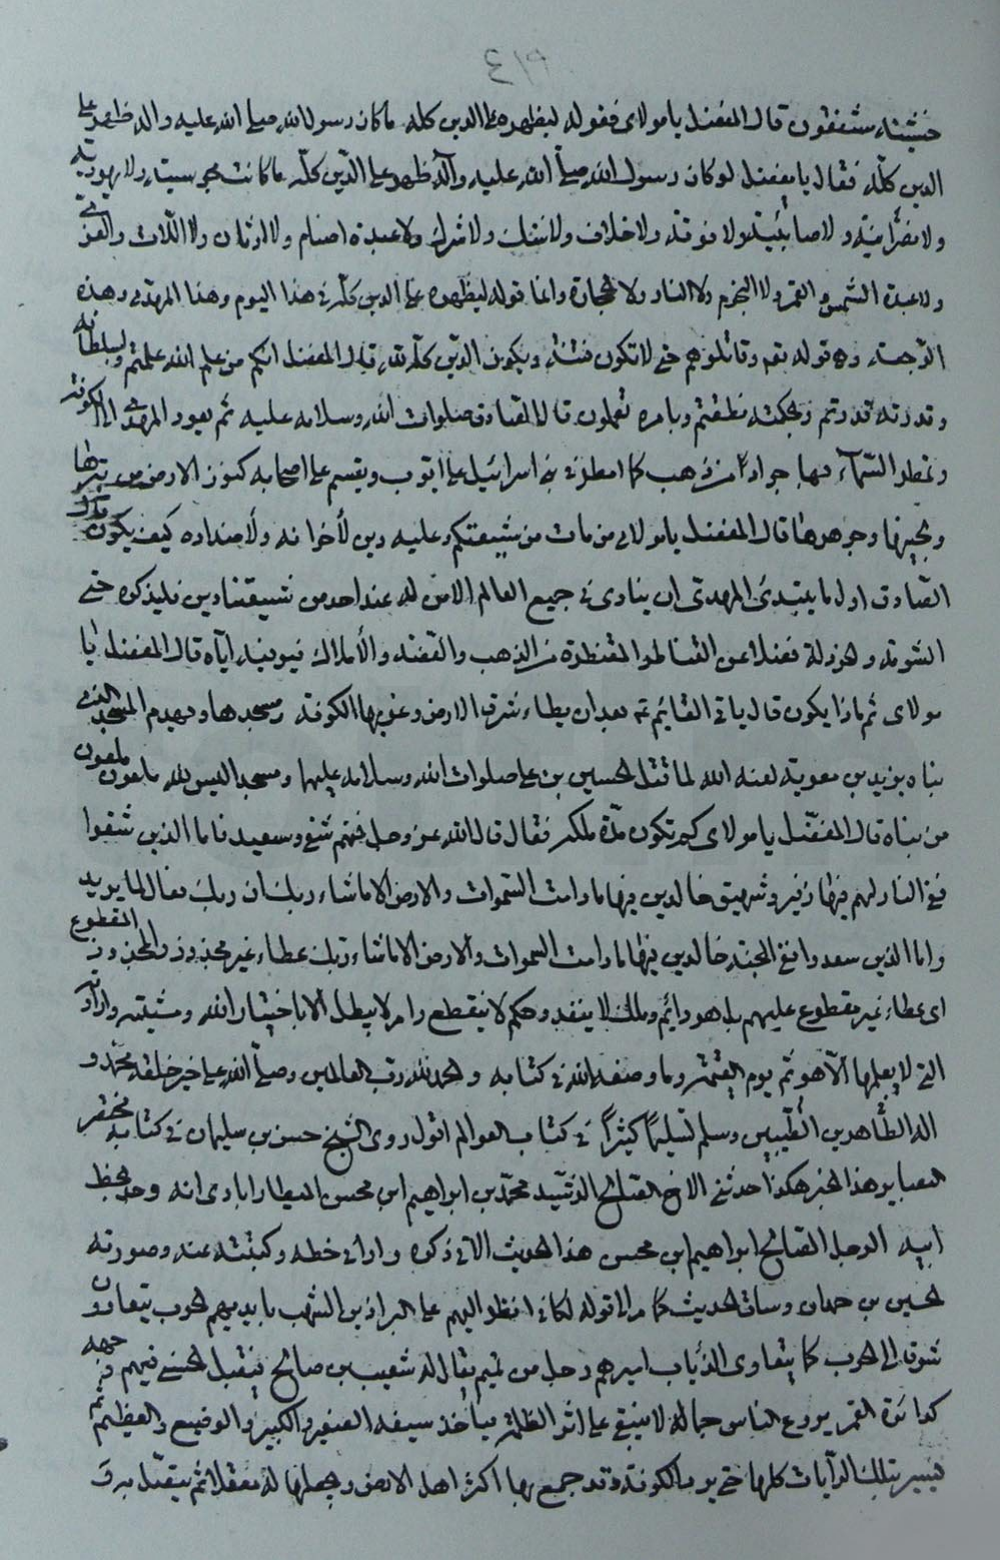 ٤١٩
خشيته مشفقون قال المفضل يا مولاى فقوله ليظهره على الدين كله ما كان رسول الله صلى الله عليه واله ظهر على
الدين كله فقال يا مفضل لو كان رسول الله صلى الله عليه وآله ظهر على الدين كله ما كانت مجوسية ولا يهودية
ولا نصرانية ولا صابئية ولا فرقة ولا خلاف ولا شك ولا شرك ولا عبدة اصنام ولا اوثان ولا اللات والعزى
ولا عبدة الشمس والقمر ولا النجوم ولا النار ولا الحجارة وانما قوله ليظهره على الدين كله فى هذا اليوم وهذا المهدى وهذه
الرجعة وهو قوله تعم وقاتلوهم حتى لا تكون فتنة ويكون الدين كله لله قال المفضل انكم من علم الله علمتم وبسلطانه
وقدرته قدرتم وبحكمته نطقتم وبامره تعملون قال الصادق صلوات الله وسلامه عليه ثم يعود المهدى الى الكوفة
وتمطر السماء بها جرادا من ذهب كما امطره فى بنى اسرائيل على ايوب ويقسم على اصحابه كنوز الارض من تبرها
ولجينها وجوهرها قال المفضل يا مولاى من مات من شيعتكم وعليه دين لأخوانه ولأضداده كيف يكون قال
الصادق اول ما يبتدئ المهدى ان ينادى فى جميع العالم الا من له عند احد من شيعتنا دين فليذكره حتى
الثومة والخردلة فضلا عن القناطير المقنطرة من الذهب والفضة والأملاك فيوفيه اياه قال المفضل يا
مولاى ثم ماذا يكون قال ياتى القائم ع بعد ان يطاء شرق الارض وغربها الكوفة ومسجدها ويهدم المسجد الذى
بناه يزيد بن معوية لعنه الله لما قتل الحسين بن على صلوات الله وسلامه عليهما ومسجد اليس لله ملعون ملعون
من بناه قال المفضل يا مولاى كم تكون مدة ملكه فقال قال الله عز وجل فمنهم شقى وسعيد فاما الذين شقوا
ففى النار لهم فيها زفير وشهيق خالدين فيها ما دامت السموات والارض الا ما شاء ربك ان ربك فعال لما يريد
واما الذين سعدوا ففى الجنة خالدين فيها ما دامت السموات والارض الا ما شاء ربك عطاء غير مجذوذ والمجذوذ المقطوع
اى عطاء غير مقطوع عليهم بل هو دائم وملك لا ينفد وحكم لا ينقطع وامر لا يبطل الا باختيار الله ومشيته وارادته
التى لا يعلمها الا هو ثم يوم القيمة وما وصفه الله فى كتابه والحمد لله رب العالمين وصلى الله على خير خلقه محمد و
اله الطاهرين الطيبين وسلم تسليما كثيرا فى كتاب العوالم اقول روى الشيخ حسن بن سليمان فى كتابه مختصر
البصاير هذا الخبر هكذا حدثنى الاخ الصالح الرشيد محمد بن ابراهيم ابن محسن المطارابادى انه وجد بخط
ابيه الرجل الصالح ابراهيم ابن محسن هذا الحديث الاتى ذكره وارانى خطه وكتبته منه وصورته
الحسين بن حمدان وساق الحديث كما مر الى قوله لكانى انظر اليهم على البراذين الشهب بايديهم الحرب يتعاوون
شوقا الى الحرب كما يتعاوى الذياب اميرهم رجل من تميم يقال له شعيب بن صالح فيقبل الحسنى فيهم وجهه
كدائرة القمر يروع الناس جمالا فيبقى على اثر الظلمة فيأخذ سيفه الصغير والكبير والوضيع والعظيم ثم
يسير بتلك الرايات كلها حتى يرد الكوفة وقد جمع بها اكثر اهل الارض ويجعلها له معقلا ثم يتصل به و